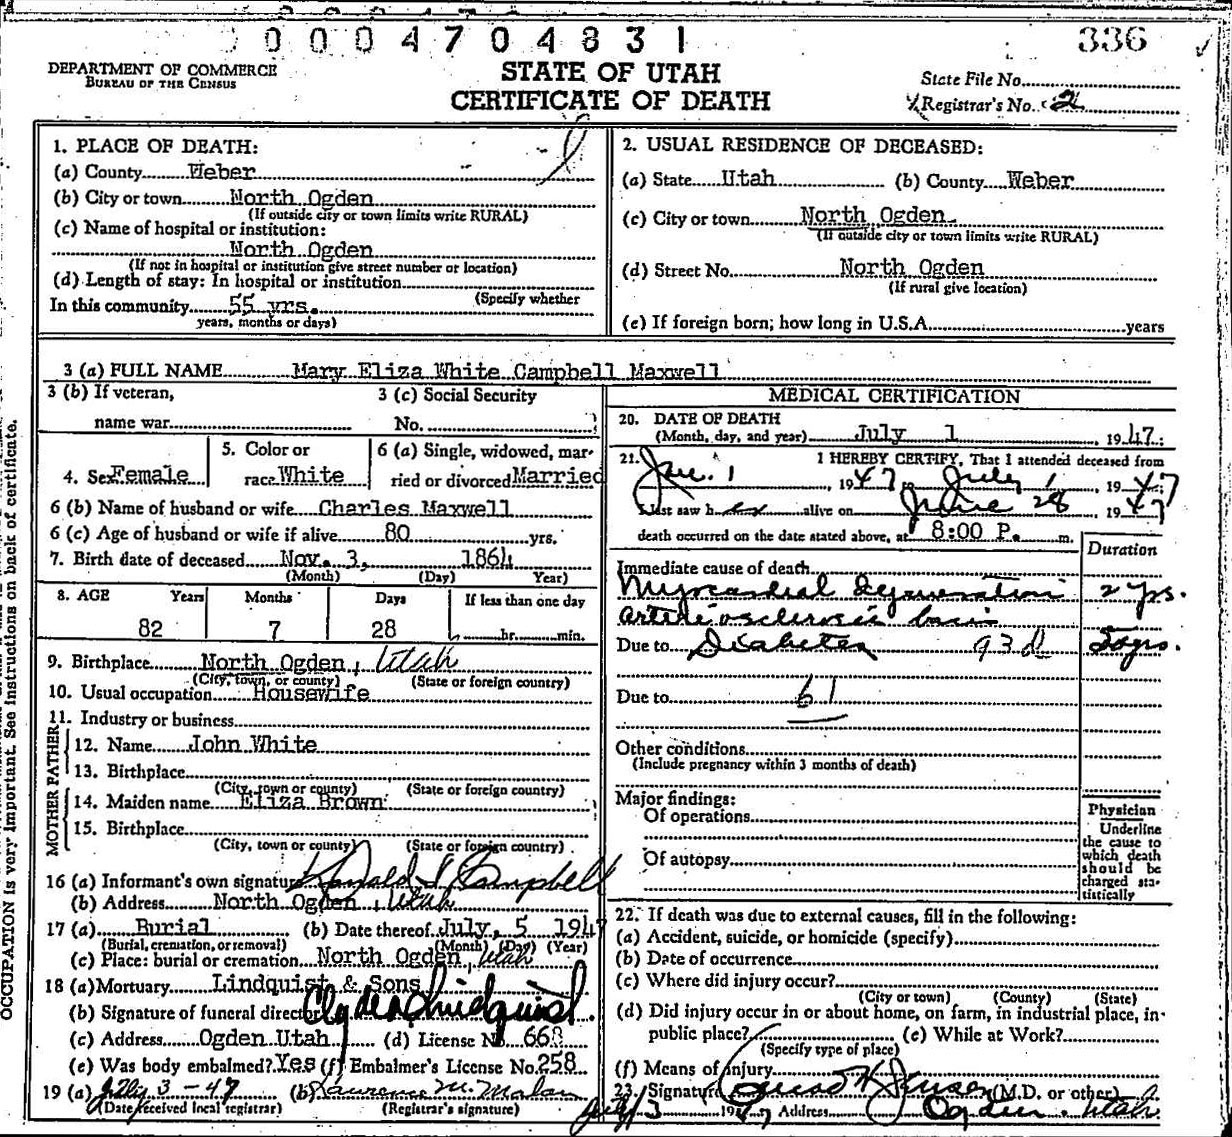 0 0 0 4 7 0 4 8 3 1
336
DEPARTMENT OF COMMERCE
BUREAU OF THE CENSUS
STATE OF UTAH
CERTIFICATE OF DEATH
State File No.
Registrar's No. 2
1. PLACE OF DEATH:
(a) County Weber
(b) City or town North Ogden
(If outside city or town limits write RURAL)
(c) Name of hospital or institution:
North Ogden
(If not in hospital or institution give street number or location)
(d) Length of stay: In hospital or institution
(Specify whether
In this community 55 yrs.
years, months or days)
2. USUAL RESIDENCE OF DECEASED:
(a) State Utah (b) County Weber
(c) City or town North Ogden
(If outside city or town limits write RURAL)
(d) Street No. North Ogden
(If rural give location)
(e) If foreign born; how long in U.S.A. years
3 (a) FULL NAME Mary Eliza White Campbell Maxwell
3 (b) If veteran,
name war
3 (c) Social Security
No.
4. Sex Female
5. Color or
race White
6 (a) Single, widowed, mar-
ried or divorced Married
6 (b) Name of husband or wife Charles Maxwell
6 (c) Age of husband or wife if alive 80 yrs.
7. Birth date of deceased Nov. 3, 1864
(Month) (Day) Year)
8. AGE Years Months Days If less than one day
82 7 28 hr. min.
9. Birthplace North Ogden, Utah
(City, town, or county) (State or foreign country)
10. Usual occupation Housewife
11. Industry or business
FATHER
12. Name John White
13. Birthplace
(City, town or county) (State or foreign country)
MOTHER
14. Maiden name Eliza Brown
15. Birthplace
(City, town or county) (State or foreign country)
16 (a) Informant's own signature Campbell
(b) Address North Ogden, Utah
17 (a) Burial (b) Date thereof July, 5 1947
(Burial, cremation, or removal) (Month) (Day) (Year)
(c) Place: burial or cremation North Ogden, Utah
18 (a) Mortuary Lindquist & Sons
(b) Signature of funeral director Clyde Lindquist
(c) Address Ogden Utah (d) License No. 668
(e) Was body embalmed? Yes (f) Embalmer's License No. 258
19 (a) July 3 - 47 (b) Laurence M. Malan
(Date received local registrar) (Registrar's signature)
MEDICAL CERTIFICATION
20. DATE OF DEATH
(Month, day, and year) July 1 1947
21. I HEREBY CERTIFY, That I attended deceased from
Jan. 1, 1947 July 1, 1947
I last saw her alive on June 28 1947
death occurred on the date stated above, at 8:00 P. m.
Duration
Immediate cause of death
Myocardial degeneration 2 yrs.
arteriosclerosis basis
Due to Diabetes 93d 5 yrs.
Due to 61
Other conditions
(Include pregnancy within 3 months of death)
Major findings:
Of operations
Of autopsy
Physician
Underline
the cause to
which death
should be
charged sta-
tistically
22. If death was due to external causes, fill in the following:
(a) Accident, suicide, or homicide (specify)
(b) Date of occurrence
(c) Where did injury occur?
(City or town) (County) (State)
(d) Did injury occur in or about home, on farm, in industrial place, in-
public place? (e) While at Work?
(Specify type of place)
(f) Means of injury
23. Signature Jensen (M.D. or other)
July 3 1947 Address Ogden, Utah
OCCUPATION is very important. See instructions on back of certificate.